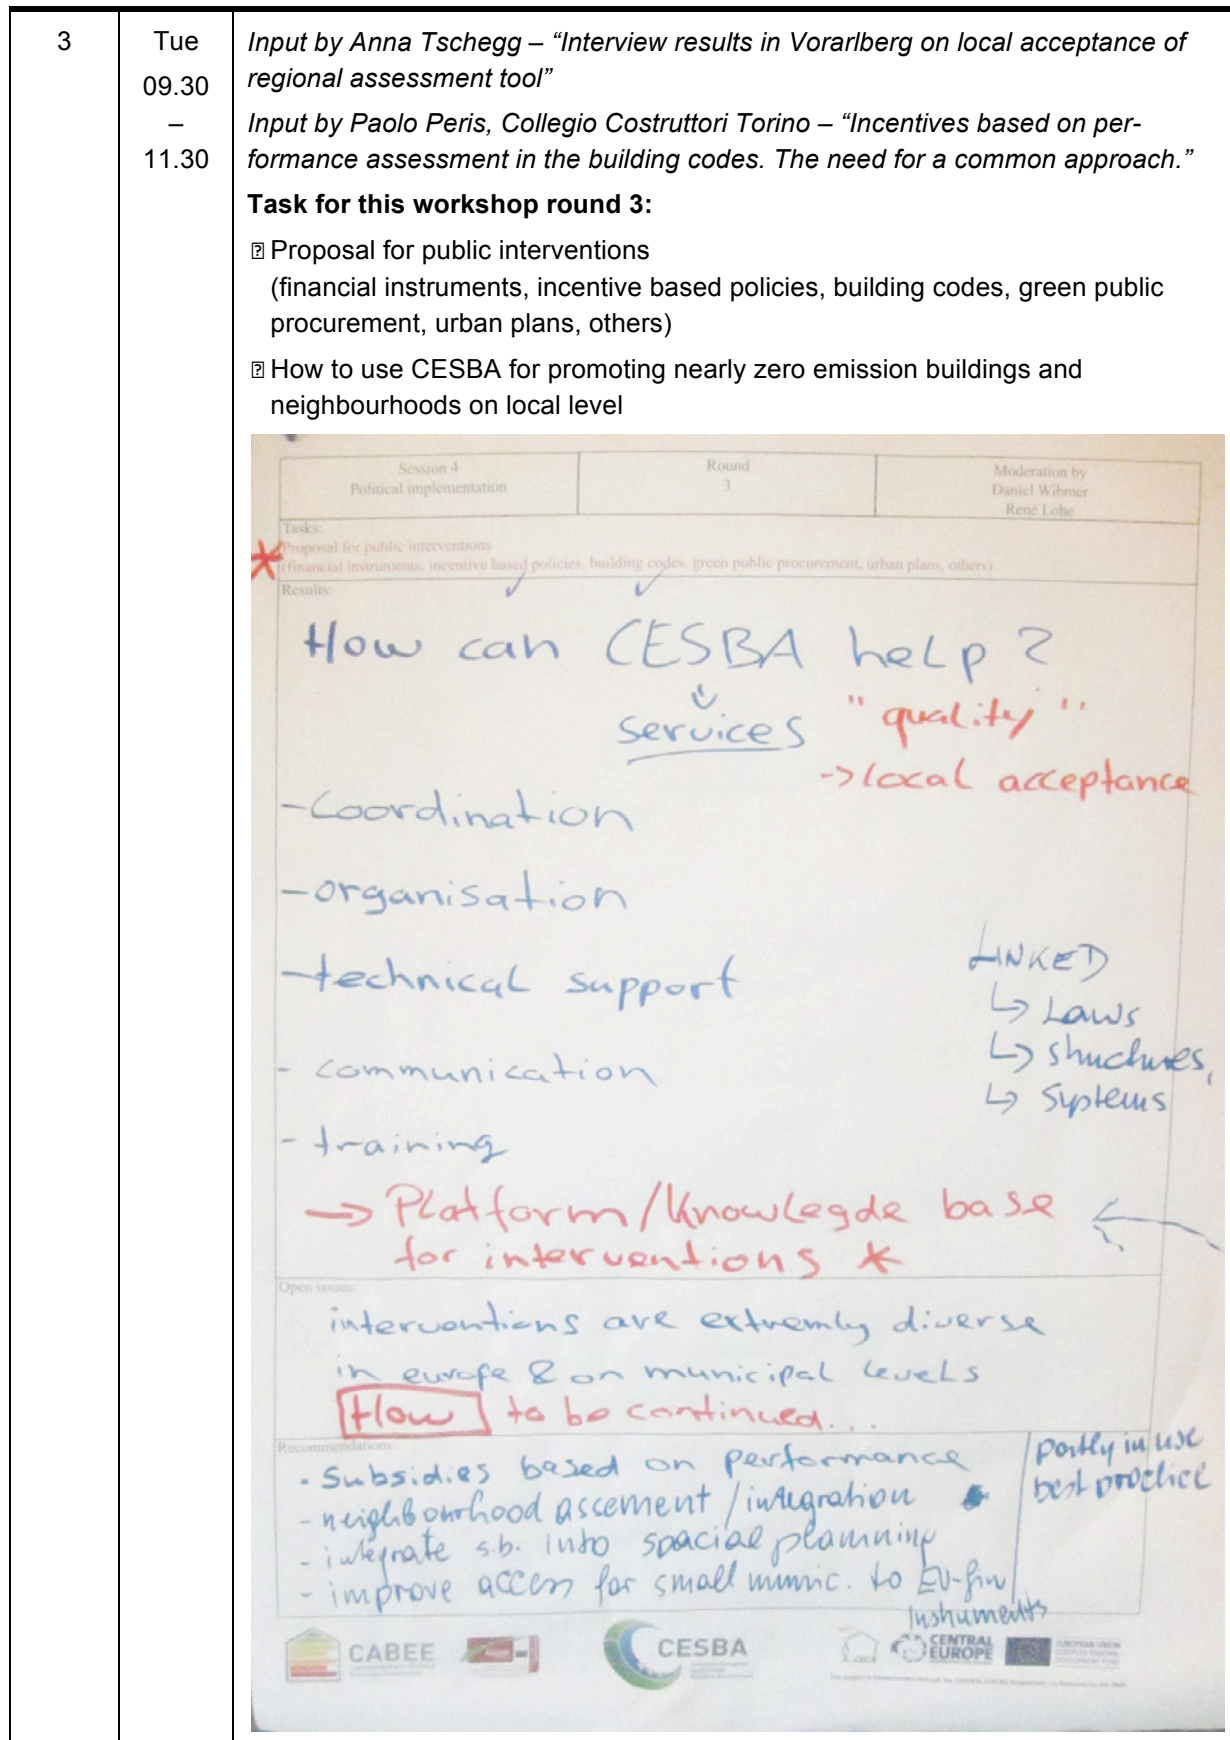 3
Tue
09.30
–
11.30
Input by Anna Tschegg – “Interview results in Vorarlberg on local acceptance of
regional assessment tool”
Input by Paolo Peris, Collegio Costruttori Torino – “Incentives based on per-
formance assessment in the building codes. The need for a common approach.”
Task for this workshop round 3:
Proposal for public interventions
(financial instruments, incentive based policies, building codes, green public
procurement, urban plans, others)
How to use CESBA for promoting nearly zero emission buildings and
neighbourhoods on local level
Session 4
Political implementation
Round
3
Moderation by
Daniel Wibmer
René Lohe
Tasks:
Proposal for public interventions
(financial instruments, incentive based policies, building codes, green public procurement, urban plans, others)
Results:
How can CESBA help?
services "quality"
->local acceptance
-coordination
-organisation
-technical support
LINKED
↳ Laws
↳ structures,
↳ Systems
- communication
- training
→ Platform/Knowlegde base
for interventions *
Open issues:
interventions are extremly diverse
in europe & on municipal levels
How to be continued...
Recommendations:
- Subsidies based on performance
- neighbourhood assement / integration
- integrate s.b. into spacial planning
- improve access for small munic. to EU-fin
Instruments
partly in use
best practice
CABEE
CESBA
CENTRAL
EUROPE
EUROPEAN UNION